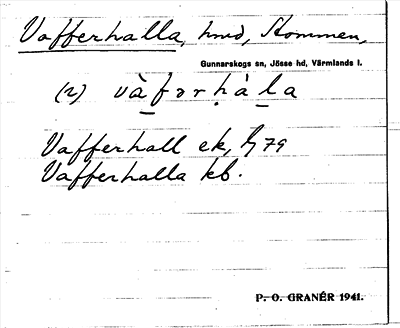 Vafferhalla, hmd, Stommen,
Gunnarskogs sn, Jösse hd, Värmlands l.
(2) vàfərhàla
Vafferhall ek, 79
Vafferhalla kb.
P. O. GRANÉR 1941.